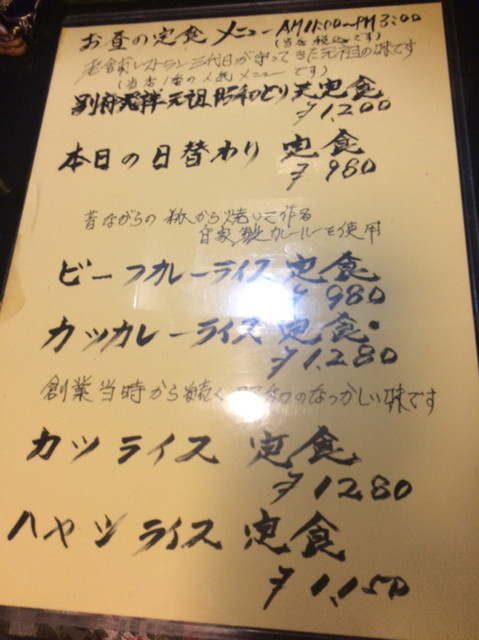 お昼の定食 メニュー AM11:00〜PM3:00
(当店 税込です)
老舗レストラン三代目が守ってきた元祖の味です
(当店1番の人気メニューです)
別府発祥元祖昭和のとり天定食
¥1,200
本日の日替わり 定食
¥980
昔ながらの 粉から焼いて作る
自家製カレールーを使用
ビーフカレーライス 定食
¥980
カツカレーライス 定食
¥1,280
創業当時から続く 昭和のなつかしい味です
カツライス 定食
¥1280
ハヤシライス 定食
¥1,150